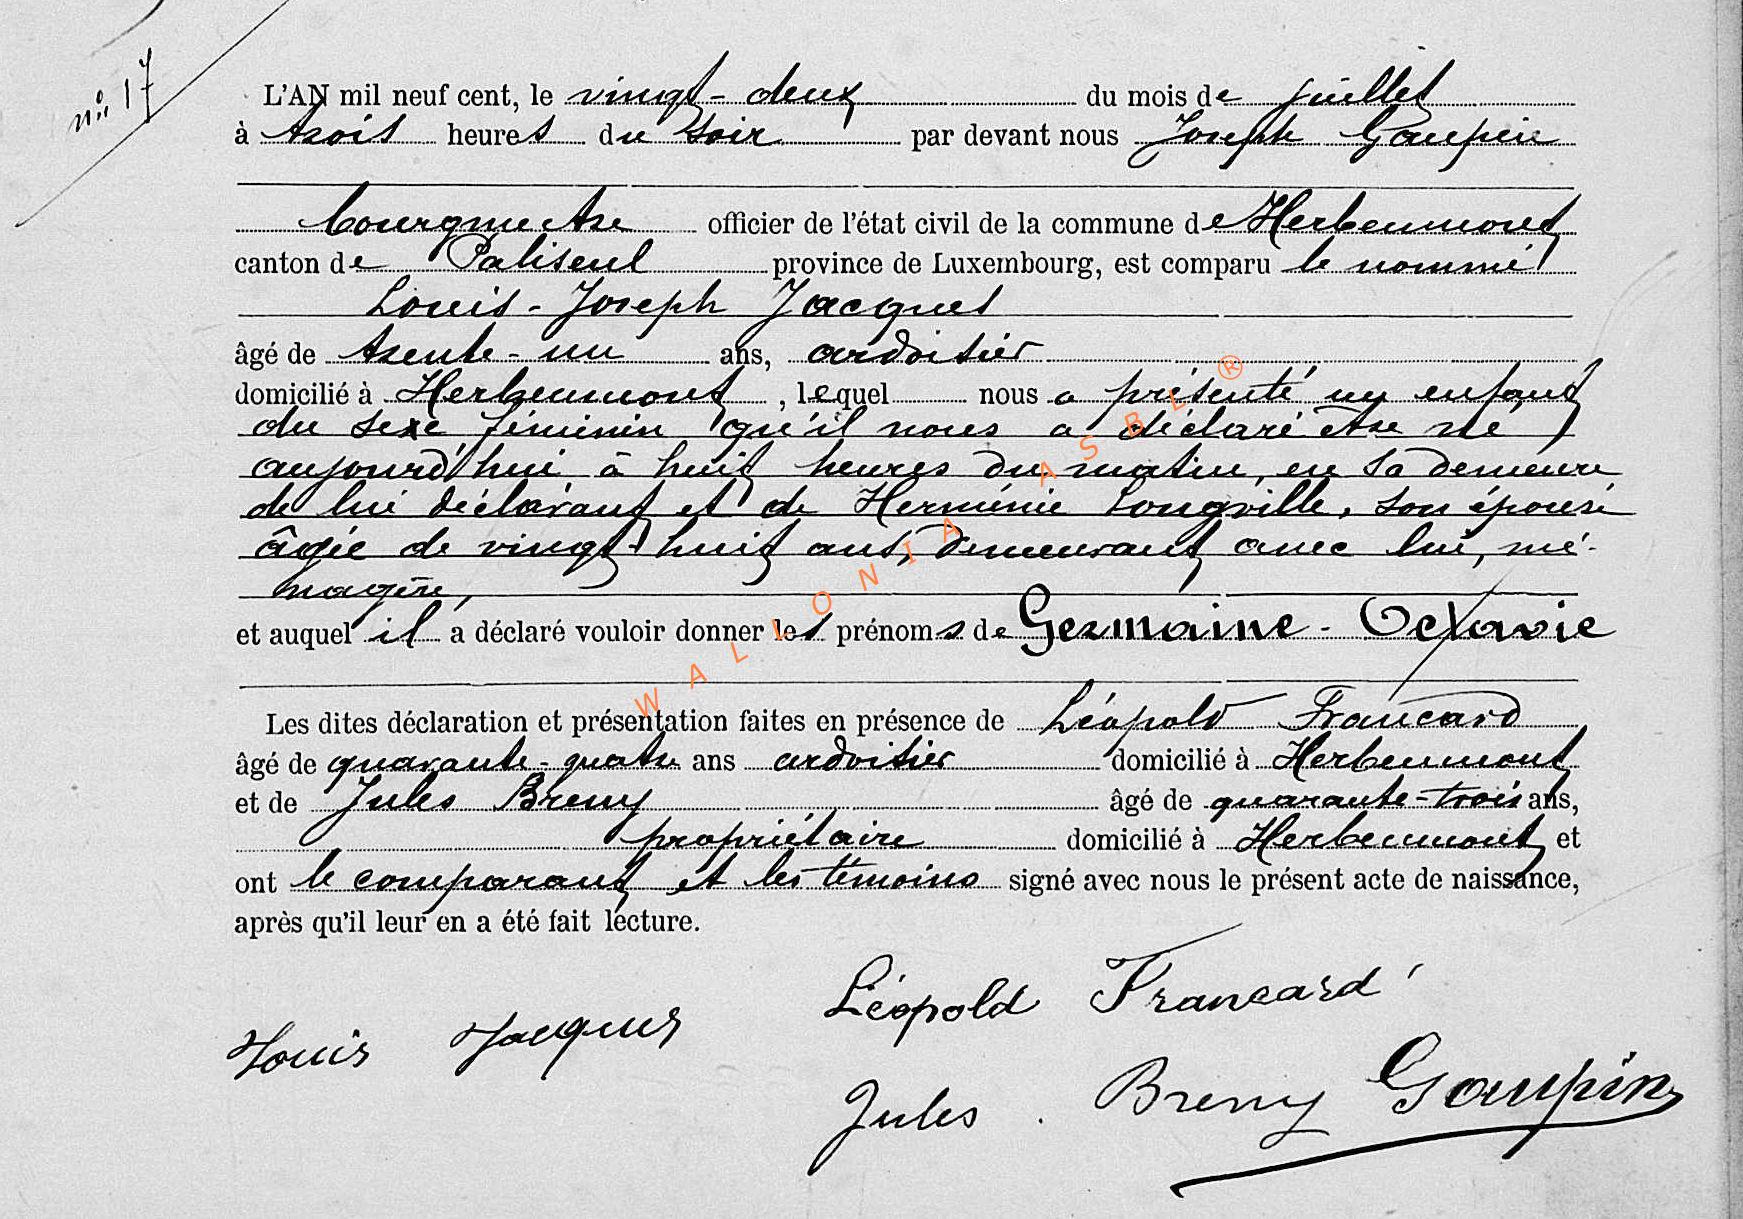 no. 17
L'AN mil neuf cent, le vingt-deux du mois de juillet
à trois heures du soir par devant nous Joseph Gaupin
bourgmestre officier de l'état civil de la commune de Herbeumont
canton de Paliseul province de Luxembourg, est comparu le nommé
Louis-Joseph Jacques
âgé de trente-un ans, ardoisier
domicilié à Herbeumont, lequel nous a présenté un enfant
du sexe féminin qu'il nous a déclaré être né
aujourd'hui à huit heures du matin, en sa demeure
de lui déclarant et de Herménie Longville, son épouse
âgée de vingt-huit ans, demeurant avec lui, mé-
nagère,
et auquel il a déclaré vouloir donner les prénoms de Germaine-Octavie
Les dites déclaration et présentation faites en présence de Léopold Francard
âgé de quarante-quatre ans ardoisier domicilié à Herbeumont
et de Jules Bremy âgé de quarante-trois ans,
propriétaire domicilié à Herbeumont et
ont le comparant et les témoins signé avec nous le présent acte de naissance,
après qu'il leur en a été fait lecture.
Léopold Francard
Louis Jacques
Jules Bremy Gaupin
WALLONIA ASBL ®